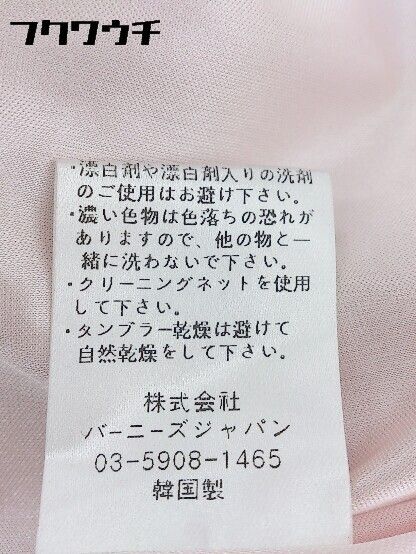 フクワウチ
・漂白剤や漂白剤入りの洗剤
のご使用はお避け下さい。
・濃い色物は色落ちの恐れが
ありますので、他の物と一
緒に洗わないで下さい。
・クリーニングネットを使用
して下さい。
・タンブラー乾燥は避けて
自然乾燥をして下さい。
株式会社
バーニーズジャパン
03-5908-1465
韓国製